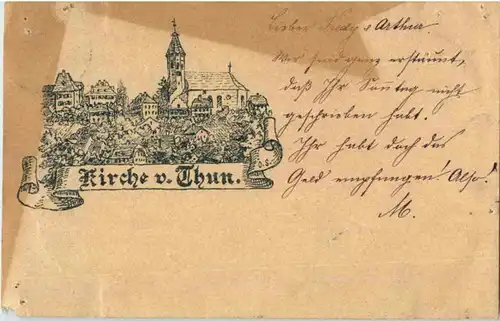 Lieber Rudy u Arthur.
Wir sind ganz erstaunt,
daß Ihr Sonntag nicht
geschrieben habt.
Ihr habt doch das
Geld empfangen! Also!
M.
Kirche v. Thun.